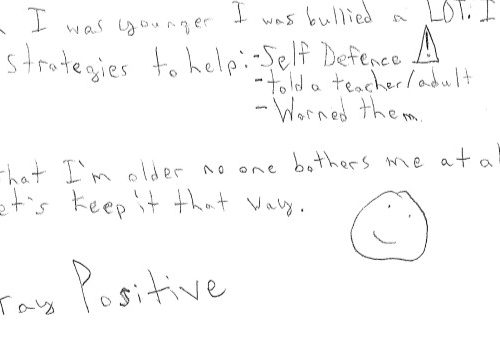 I was younger I was bullied a LOT. I
Strategies to help:-Self Defence
-told a teacher/adult
-Worned them.
that I'm older no one bothers me at al
et's keep it that way.
tay Positive